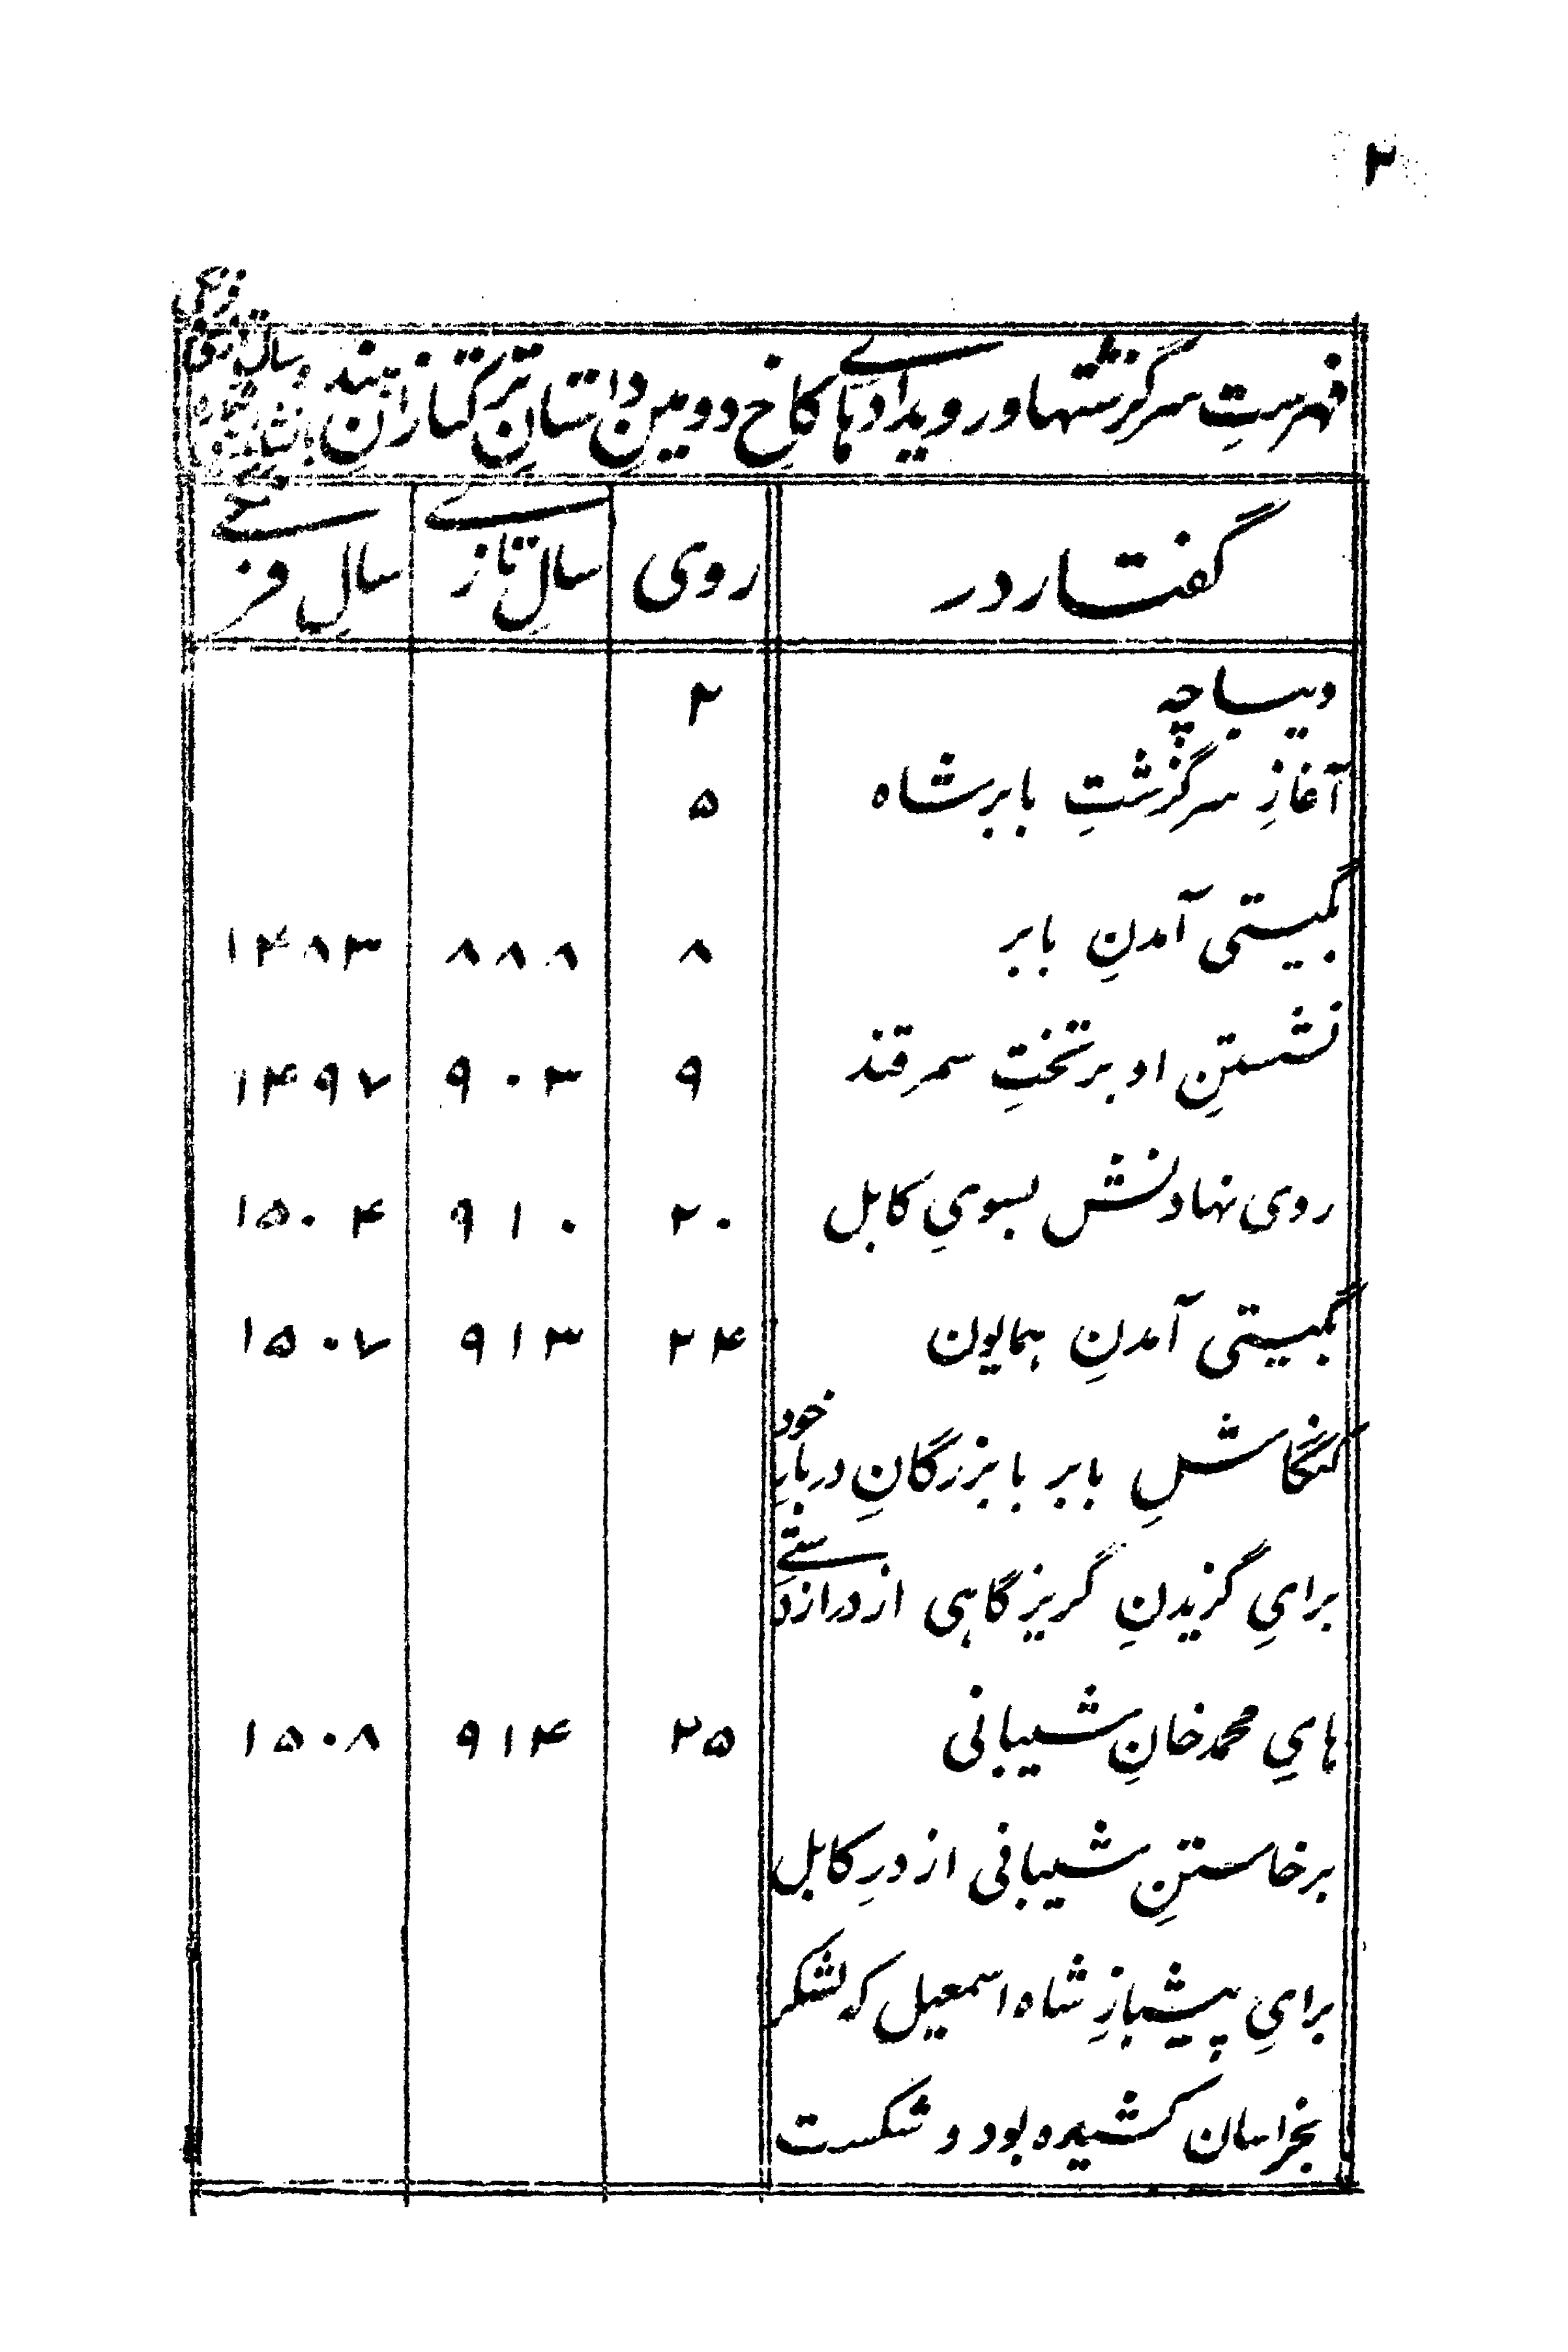 ۲
فهرستِ سرگزشتها و رویدادهای کاخِ دومینِ داستانِ ترکتازانِ هند
گفتار در روی سالِ تازی سالِ فرنگی
دیباچه ۲
آغازِ سرگزشتِ بابرشاه ۵
بگیتی آمدنِ بابر ۸ ۸۸۸ ۱۴۸۳
نشستنِ او بر تختِ سمرقند ۹ ۹۰۳ ۱۴۹۷
روی نهادنش بسویِ کابل ۲۰ ۹۱۰ ۱۵۰۴
بگیتی آمدنِ همایون ۲۴ ۹۱۳ ۱۵۰۷
کنگاشِ بابر با بزرگانِ دربارِ خود
برایِ گزیدنِ گریزگاهی از درازدستی
هایِ محمدخانِ شیبانی ۲۵ ۹۱۴ ۱۵۰۸
برخاستنِ شیبانی از درِ کابل
برایِ پیشبازِ شاه اسمعیل که لشکر
بخراسان کشیده بود و شکست